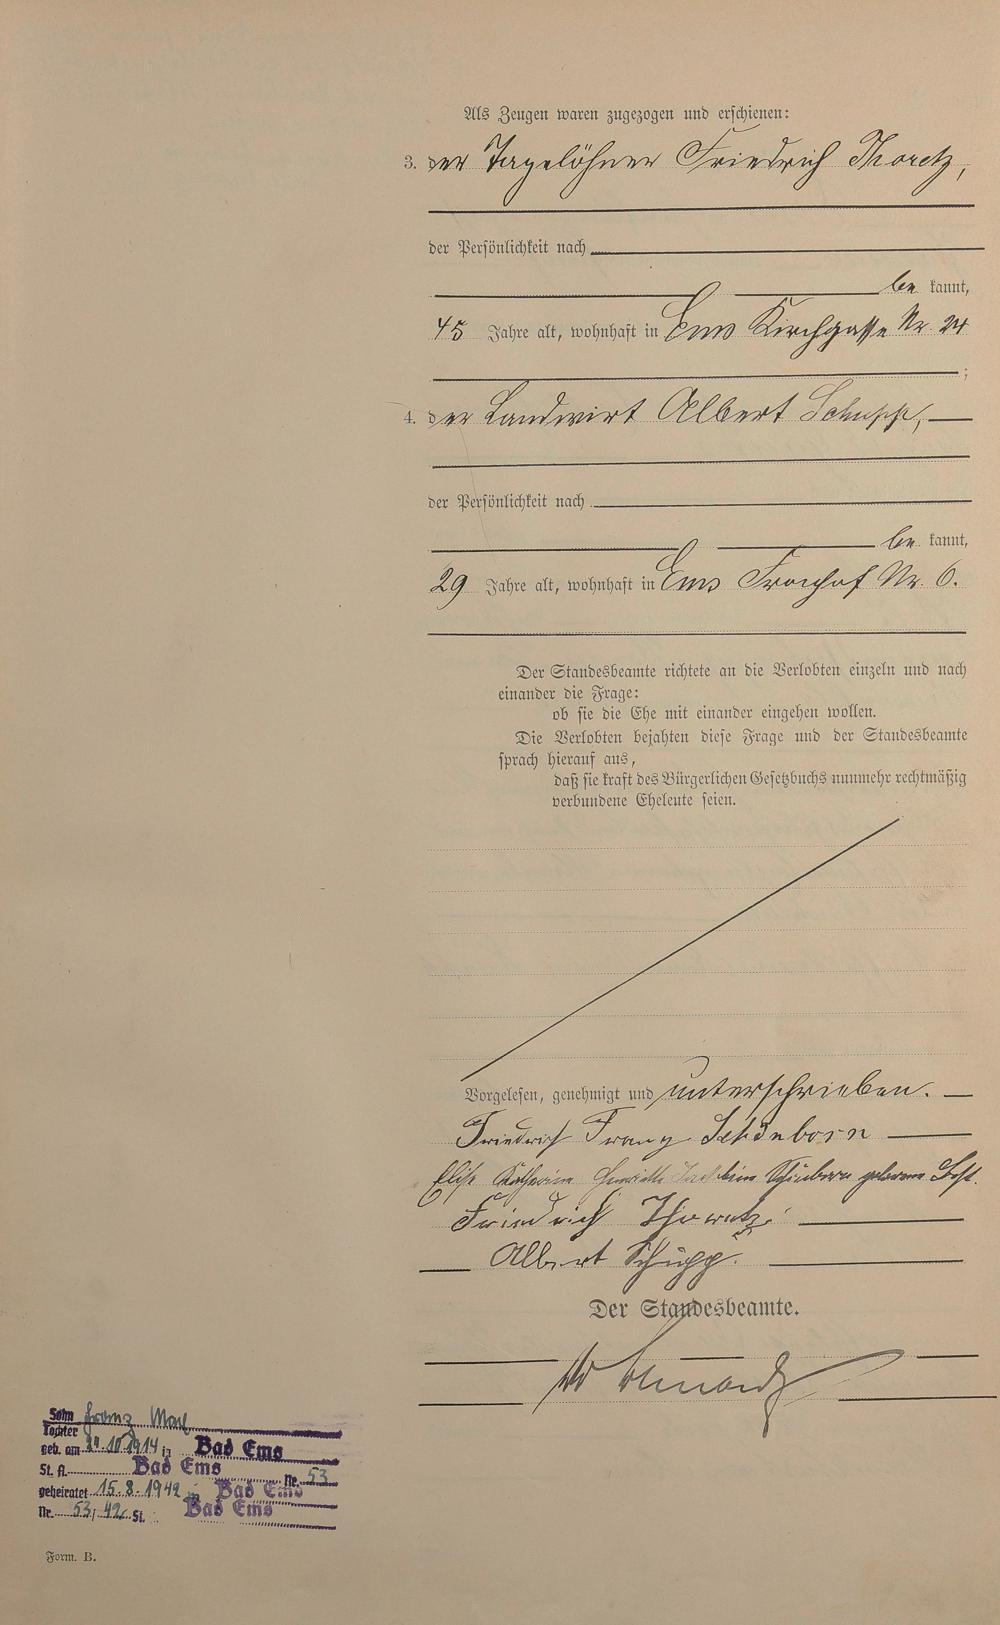 Als Zeugen waren zugezogen und erschienen:
3. der Tagelöhner Friedrich Thoretz,
der Persönlichkeit nach
be kannt,
45 Jahre alt, wohnhaft in Ems Kirchgasse Nr. 24
;
4. der Landwirt Albert Schupp,
der Persönlichkeit nach
be kannt,
29 Jahre alt, wohnhaft in Ems Fronhof Nr. 6.
Der Standesbeamte richtete an die Verlobten einzeln und nach
einander die Frage:
ob sie die Ehe mit einander eingehen wollen.
Die Verlobten bejahten diese Frage und der Standesbeamte
sprach hierauf aus,
daß sie kraft des Bürgerlichen Gesetzbuchs nunmehr rechtmäßig
verbundene Eheleute seien.
Vorgelesen, genehmigt und unterschrieben.
Friedrich Franz Schönborn
Elise Katharina Henriette Schönborn geborene
Friedrich Thoretz
Albert Schupp.
Der Standesbeamte.
Sohn Franz
Tochter
geb. am 10 1914 in Bad Ems
St. A. Bad Ems Nr. 53
geheiratet 15.8.1942 in Bad Ems
Nr. 53/42 St. Bad Ems
Form. B.